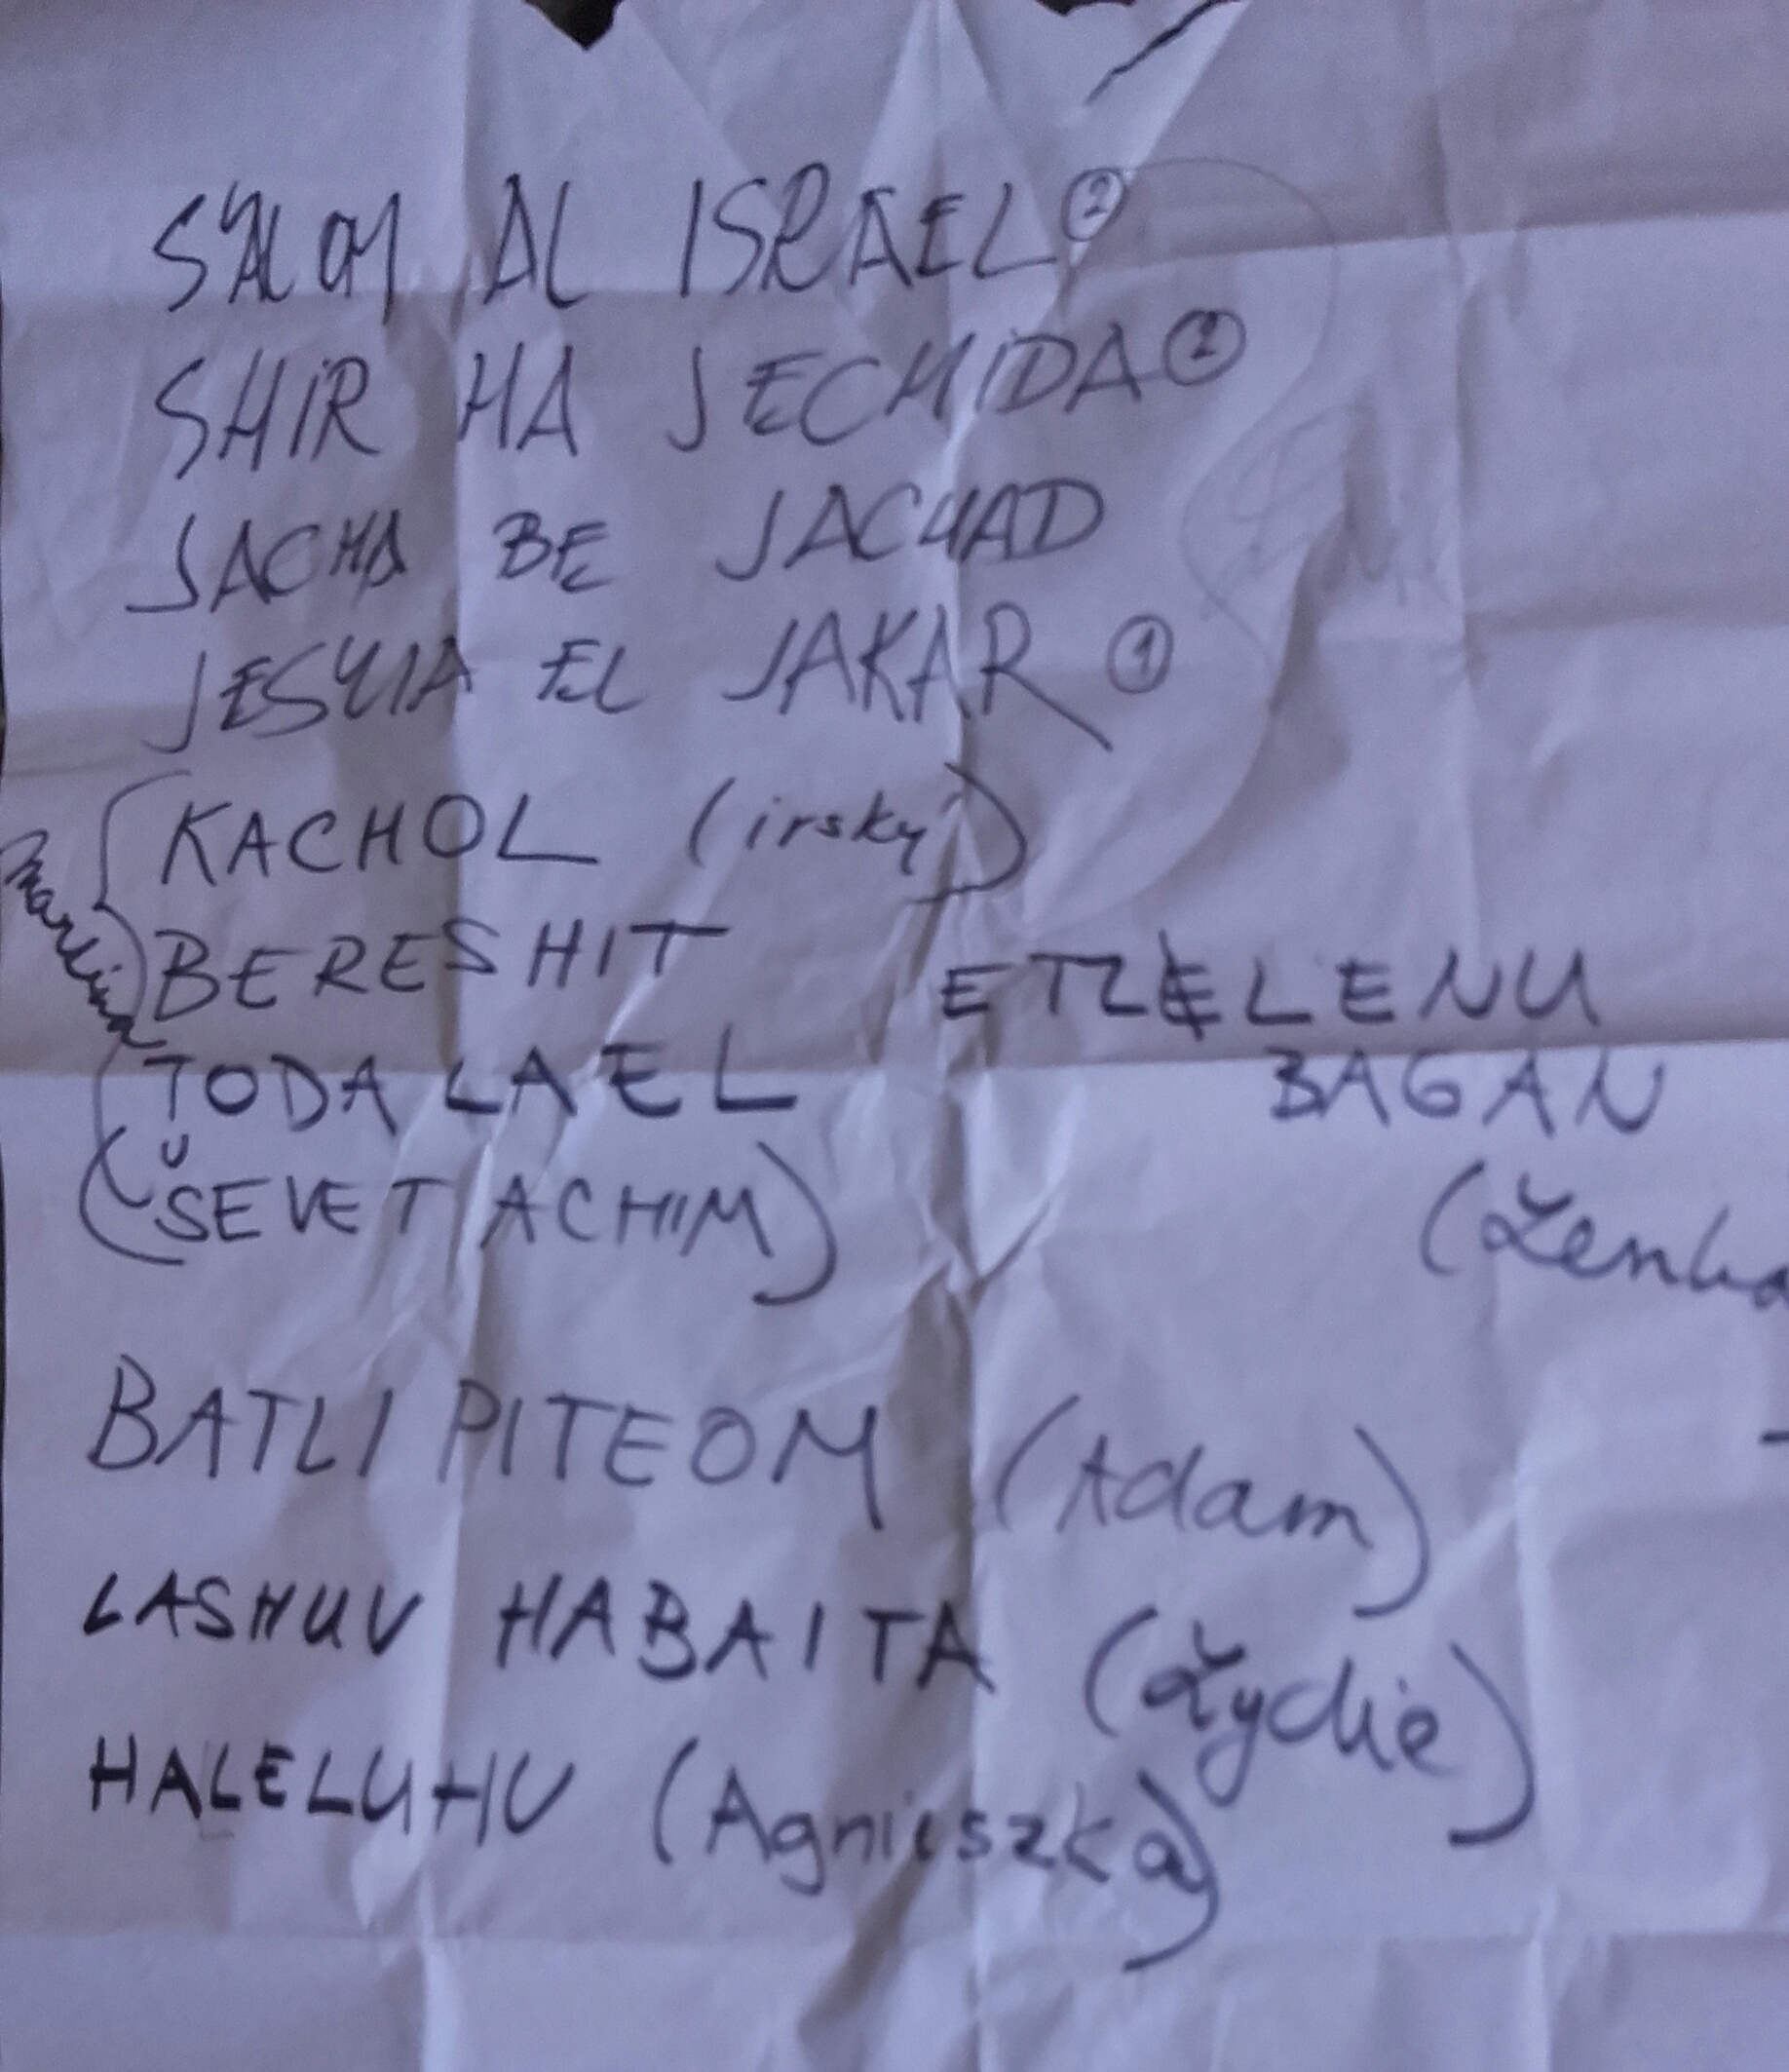 SALOM AL ISRAEL ②
SHIR HA JECHIDA ②
JACHA BE JACHAD
JESHUA EL JAKAR ①
KACHOL (irský)
BERESHIT
ETZELENU
TODA LAEL
BAGAN
(ŠEVET ACHIM)
BATLI PITEOM (Adam)
LASHUV HABAITA (Žydie)
HALELUHU (Agnieszka)